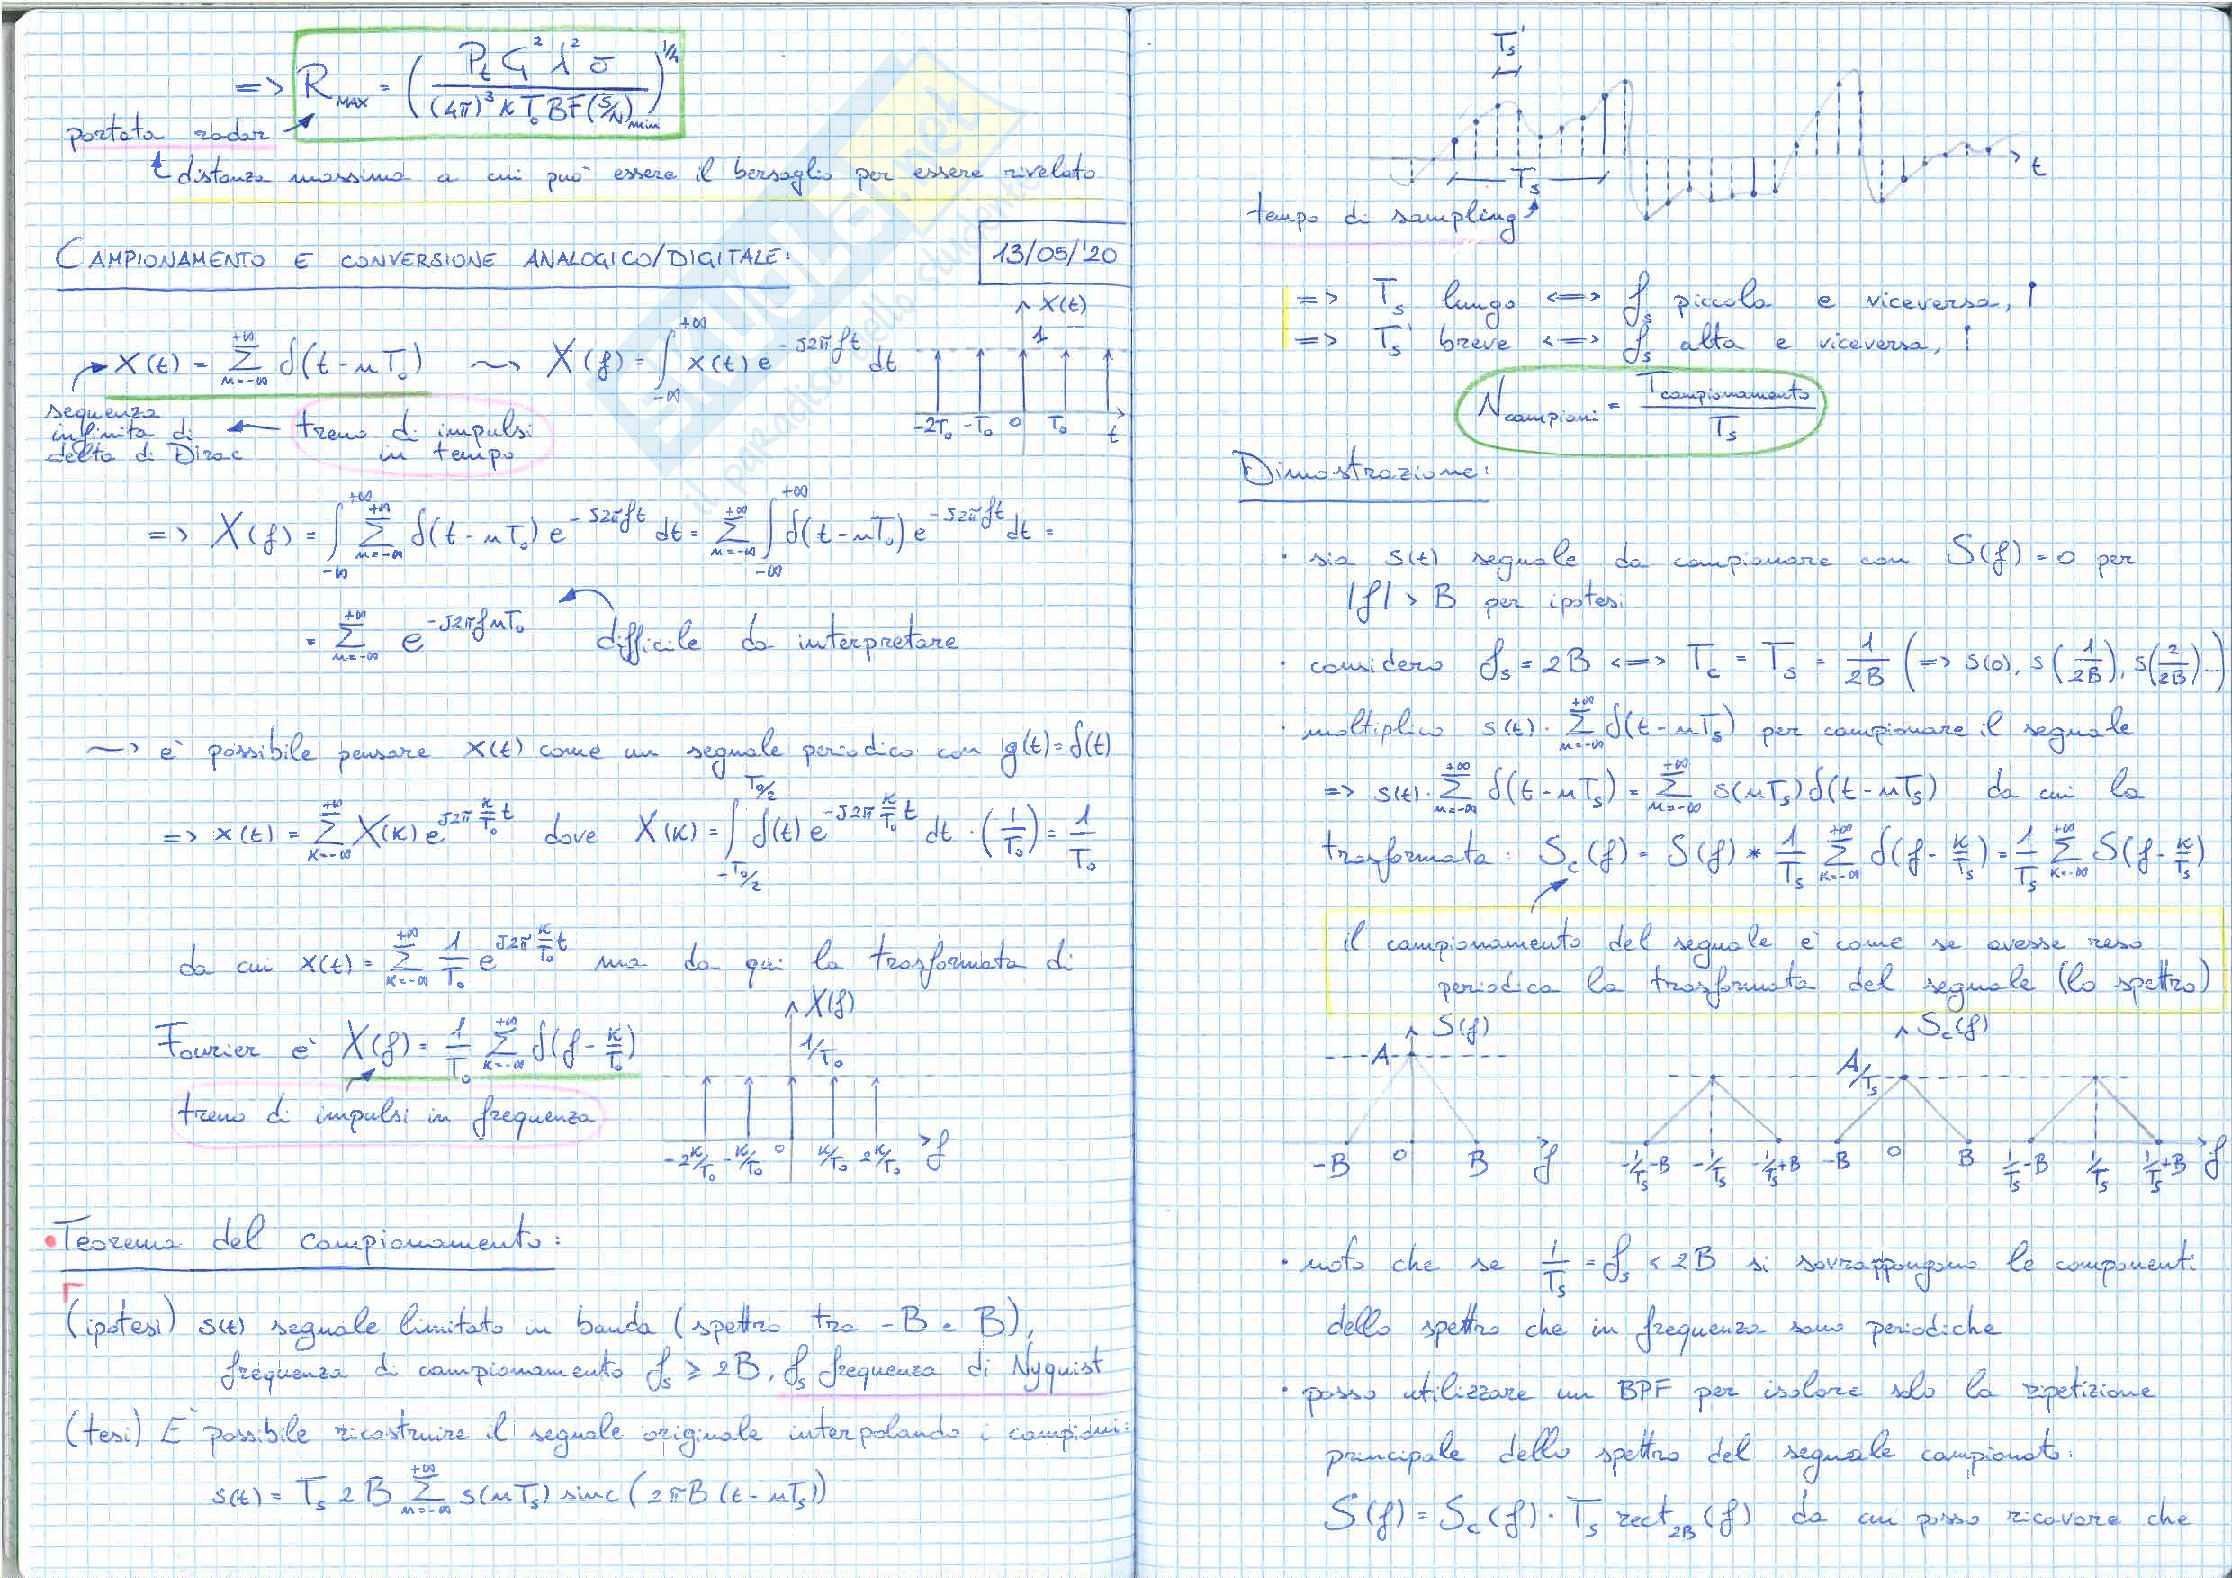 => R_MAX = (P_t G² λ² σ / (4π)³ K T₀ B F (S/N)_min)^1/4
portata radar
distanza massima a cui può essere il bersaglio per essere rivelato
CAMPIONAMENTO E CONVERSIONE ANALOGICO/DIGITALE:
13/05/'20
X(t) = Σ_{n=-∞}^{+∞} δ(t-nT₀) ~> X(f) = ∫_{-∞}^{+∞} x(t) e^{-J2πft} dt
X(t)
1
-2T₀ -T₀ 0 T₀ t
sequenza
infinita di
delta di Dirac
treno di impulsi
in tempo
=> X(f) = ∫_{-∞}^{+∞} Σ_{n=-∞}^{+∞} δ(t-nT₀) e^{-J2πft} dt = Σ_{n=-∞}^{+∞} ∫_{-∞}^{+∞} δ(t-nT₀) e^{-J2πft} dt =
= Σ_{n=-∞}^{+∞} e^{-J2πfnT₀} difficile da interpretare
~> è possibile pensare x(t) come un segnale periodico con g(t)=δ(t)
=> x(t) = Σ_{K=-∞}^{+∞} X(K) e^{J2π K/T₀ t} dove X(K) = ∫_{-T₀/2}^{T₀/2} δ(t) e^{-J2π K/T₀ t} dt · (1/T₀) = 1/T₀
da cui x(t) = Σ_{K=-∞}^{+∞} 1/T₀ e^{J2π K/T₀ t} ma da qui la trasformata di
Fourier è X(f) = 1/T₀ Σ_{K=-∞}^{+∞} δ(f - K/T₀)
treno di impulsi in frequenza
X(f)
1/T₀
-2K/T₀ -K/T₀ 0 K/T₀ 2K/T₀ f
Teorema del campionamento:
(ipotesi) s(t) segnale limitato in banda (spettro tra -B e B),
frequenza di campionamento f_s ≥ 2B, f_s frequenza di Nyquist
(tesi) È possibile ricostruire il segnale originale interpolando i campioni:
s(t) = T_s 2B Σ_{n=-∞}^{+∞} s(nT_s) sinc(2πB(t-nT_s))
T_s'
T_s
t
tempo di sampling
=> T_s lungo <=> f_s piccola e viceversa,
=> T_s' breve <=> f_s alta e viceversa,
N_campioni = T_campionamento / T_s
Dimostrazione:
· sia s(t) segnale da campionare con S(f) = 0 per
|f| > B per ipotesi
· considero f_s = 2B <=> T_c = T_s = 1/2B (=> s(0), s(1/2B), s(2/2B)...)
· moltiplico s(t) · Σ_{n=-∞}^{+∞} δ(t-nT_s) per campionare il segnale
=> s(t) · Σ_{n=-∞}^{+∞} δ(t-nT_s) = Σ_{n=-∞}^{+∞} s(nT_s) δ(t-nT_s) da cui la
trasformata: S_c(f) = S(f) * 1/T_s Σ_{K=-∞}^{+∞} δ(f - K/T_s) = 1/T_s Σ_{K=-∞}^{+∞} S(f - K/T_s)
il campionamento del segnale è come se avesse reso
periodica la trasformata del segnale (lo spettro)
S(f)
A
-B 0 B f
S_c(f)
A/T_s
-1/T_s-B -1/T_s -1/T_s+B -B 0 B 1/T_s-B 1/T_s 1/T_s+B f
· noto che se 1/T_s = f_s < 2B si sovrappongono le componenti
dello spettro che in frequenza sono periodiche
· posso utilizzare un BPF per isolare solo la ripetizione
principale dello spettro del segnale campionato:
S(f) = S_c(f) · T_s rect_2B(f) da cui posso ricavare che